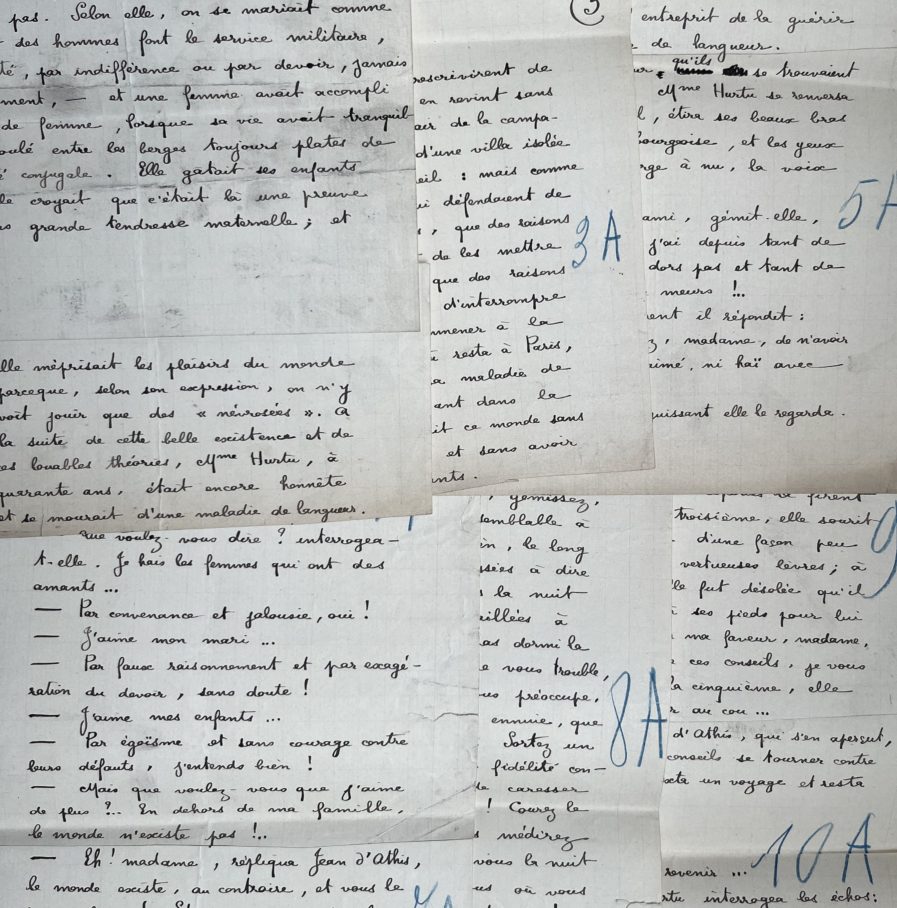 pas. Selon elle, on se mariait comme
des hommes font le service militaire,
té, par indifférence ou par devoir, jamais
ment, — et une femme avait accompli
de femme, lorsque sa vie avait tranquil-
oulé entre les berges toujours plates de
é conjugale. Elle gâtait ses enfants
le croyait que c'était là une preuve
us grande tendresse maternelle ; et
lle méprisait les plaisirs du monde
parceque, selon son expression, on n'y
voit jouir que des « névrosées ». A
la suite de cette belle existence et de
es louables théories, Mme Hurtu, à
quarante ans, était encore honnête
et se mourait d'une maladie de langueur.
3
rescrivirent de
en revint sans
air de la campa-
d'une villa isolée
eil : mais comme
ui défendaient de
, que des raisons
de les mettre
que des raisons
d'interrompre
mmener à la
i resta à Paris,
a maladie de
ant dans la
it ce monde sans
et sans avoir
nts.
3A
entreprit de la guérir
de langueur.
ur qu'ils se trouvaient
Mme Hurtu se renversa
l, étira ses beaux bras
bourgeoise, et les yeux
rge à nu, la voix
ami, gémit-elle,
j'ai depuis tant de
dors pas et tant de
meurs !..
ent il répondit :
z, madame, de n'avoir
aimé, ni haï avec
uissant elle le regarda.
5A
Que voulez-vous dire ? interrogea-
t-elle. Je hais les femmes qui ont des
amants ...
— Par convenance et jalousie, oui !
— J'aime mon mari ...
— Par faux raisonnement et par exagé-
ration du devoir, sans doute !
— J'aime mes enfants ...
— Par égoïsme et sans courage contre
leurs défauts, j'entends bien !
— Mais que voulez-vous que j'aime
de plus ?.. En dehors de ma famille,
le monde n'existe pas !..
— Eh ! madame, répliqua Jean d'Athis,
le monde existe, au contraire, et vous le
, gémissez,
semblable à
in, le long
sées à dire
la nuit
illées à
as dormi la
e vous trouble,
us préoccupe,
ennuie, que
Sortez un
fidélité con-
le caresser
! Courez le
s médirez
vous la nuit
us où vous
8A
firent
troisième, elle sourit
d'une façon peu
vertueuses lèvres ; à
lle fut désolée qu'il
à ses pieds pour lui
ma faveur, madame,
ces conseils, je vous
la cinquième, elle
r au cou ...
9
d'Athis, qui s'en aperçut,
conseils se tourner contre
texta un voyage et resta
revenir ...
rtu interrogea les échos :
10A